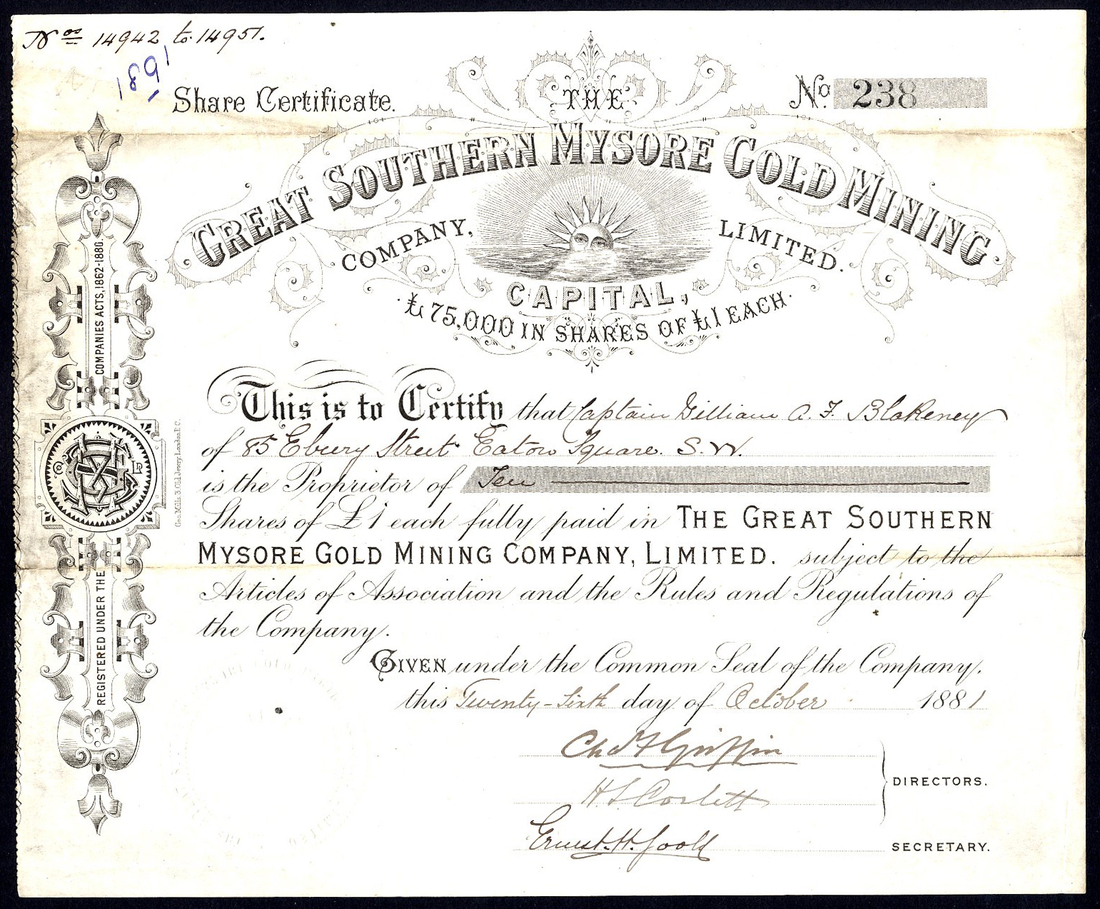 Nos 14942 to 14951.
1891
Share Certificate.
No 238
THE
GREAT SOUTHERN MYSORE GOLD MINING
COMPANY, LIMITED.
CAPITAL,
£75,000 IN SHARES OF £1 EACH.
This is to Certify that Captain William A. F. Blakeney
of 85 Ebury Street Eaton Square. S. W.
is the Proprietor of Ten
Shares of £1 each fully paid in THE GREAT SOUTHERN
MYSORE GOLD MINING COMPANY, LIMITED. subject to the
Articles of Association and the Rules and Regulations of
the Company.
GIVEN under the Common Seal of the Company,
this Twenty-Sixth day of October 1881
Chas F Griffin
H S Corlett
DIRECTORS.
Ernest H. Joold
SECRETARY.
REGISTERED UNDER THE
COMPANIES ACTS, 1862-1880.
Co LD
Geo. Mills 3 Old Jewry London E.C.